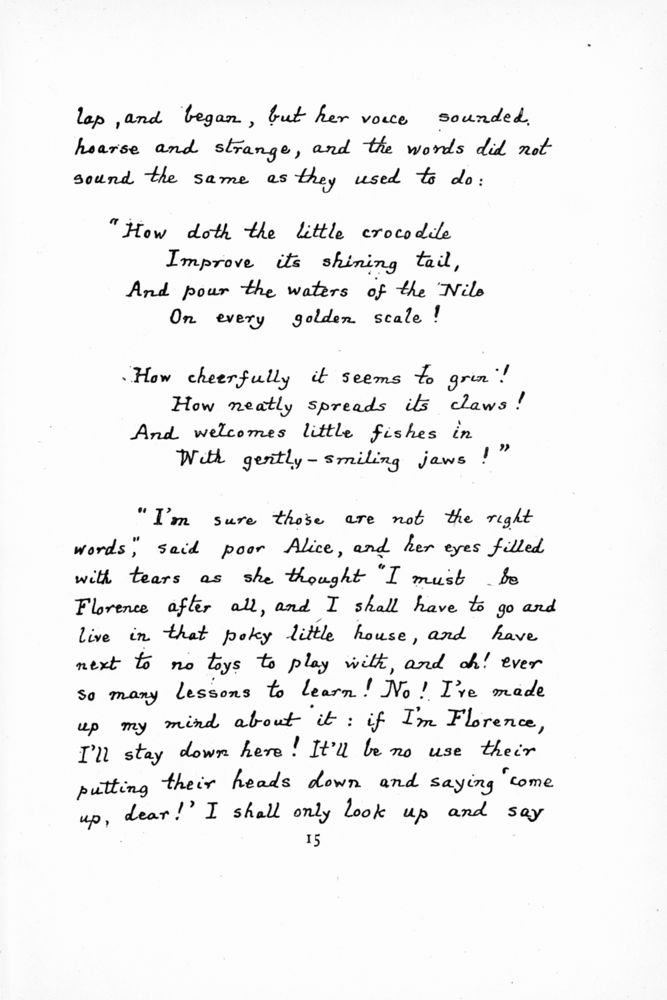 lap, and began, but her voice sounded
hoarse and strange, and the words did not
sound the same as they used to do:
"How doth the little crocodile
Improve its shining tail,
And pour the waters of the Nile
On every golden scale!
How cheerfully it seems to grin!
How neatly spreads its claws!
And welcomes little fishes in
With gently-smiling jaws!"
"I'm sure those are not the right
words," said poor Alice, and her eyes filled
with tears as she thought "I must be
Florence after all, and I shall have to go and
live in that poky little house, and have
next to no toys to play with, and oh! ever
so many lessons to learn! No! I've made
up my mind about it: if I'm Florence,
I'll stay down here! It'll be no use their
putting their heads down and saying 'come
up, dear!' I shall only look up and say
15